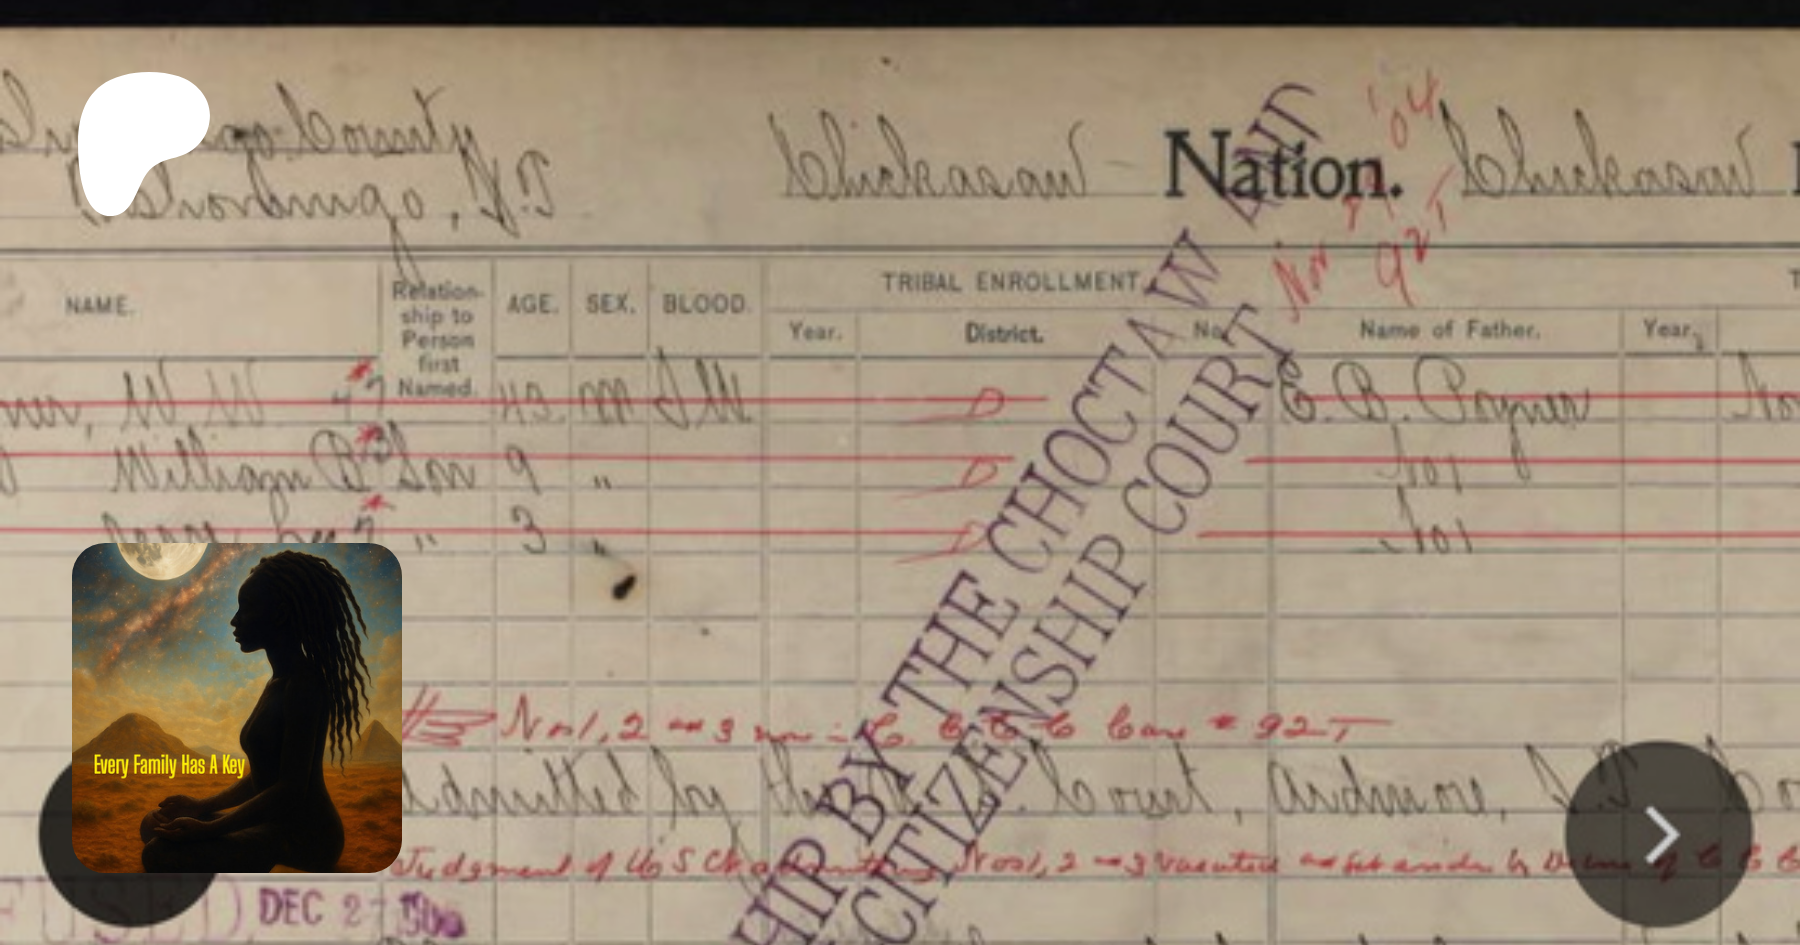 County
Tishomingo, I.T.
Chickasaw Nation. Chickasaw
'04
Nov
92T
NAME.
Relation-
ship to
Person
first
Named.
AGE. SEX. BLOOD.
TRIBAL ENROLLMENT.
Year. District. No.
Name of Father.
Year.
W. W. 43 M I.W. D E. B. Poyner
William B Son 9 " D No1
Lee " 3 " D No1
Nos 1, 2 and 3 now in C. C. C. C. Case # 92T
Admitted by the U.S. Court, Ardmore, I.T.
Judgment of U S Ct admitting Nos 1, 2 and 3 vacated and set aside by Decree of C C C
DEC 2
HIP BY THE CHOCTAW AND
CITIZENSHIP COURT
Every Family Has A Key